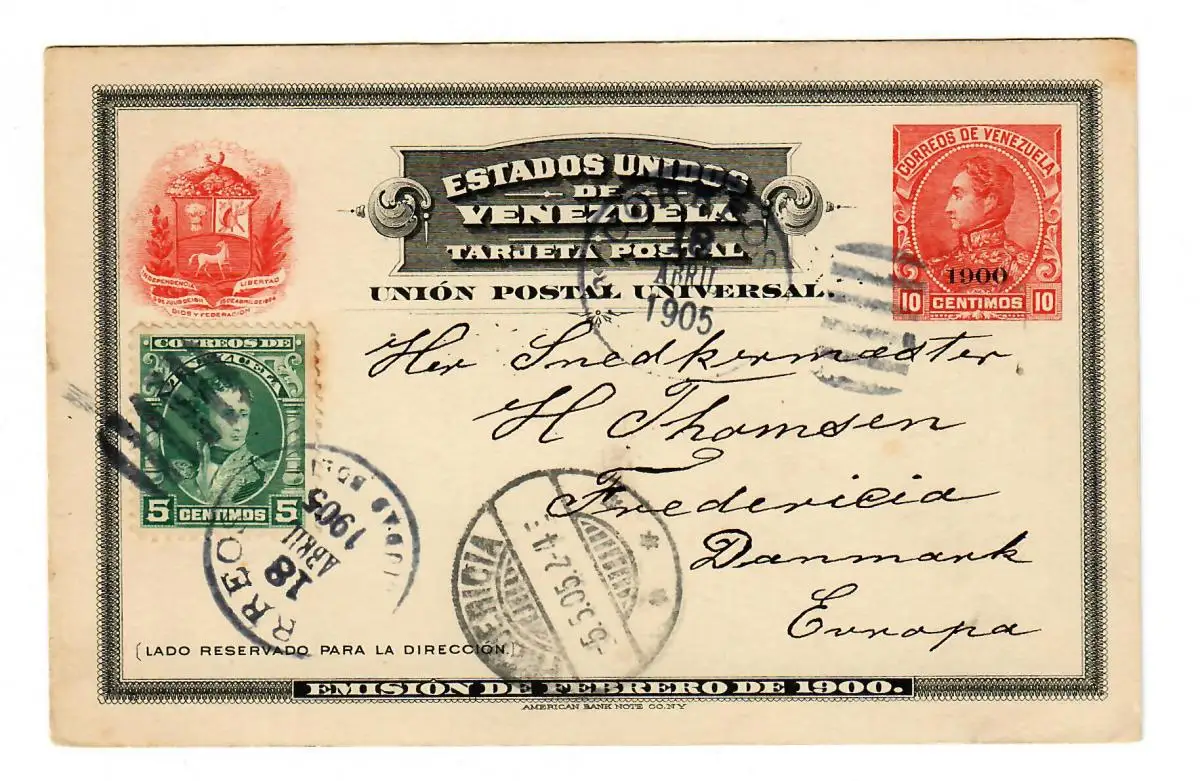 ESTADOS UNIDOS
DE
VENEZUELA
TARJETA POSTAL
UNIÓN POSTAL UNIVERSAL.
CORREOS DE VENEZUELA
1900
10 CENTIMOS 10
INDEPENDENCIA LIBERTAD
5 DE JULIO DE 1811
DIOS Y FEDERACION
18
ABRIL
1905
CORREOS DE
VENEZUELA
5 CENTIMOS 5
Her Snedkermæster
H Thomsen
Fredericia
Danmark
Evropa
18
ABRIL
1905
FREDERICIA
5.5.05.2-4 E
(LADO RESERVADO PARA LA DIRECCIÓN.)
EMISIÓN DE FEBRERO DE 1900.
AMERICAN BANK NOTE CO. N.Y